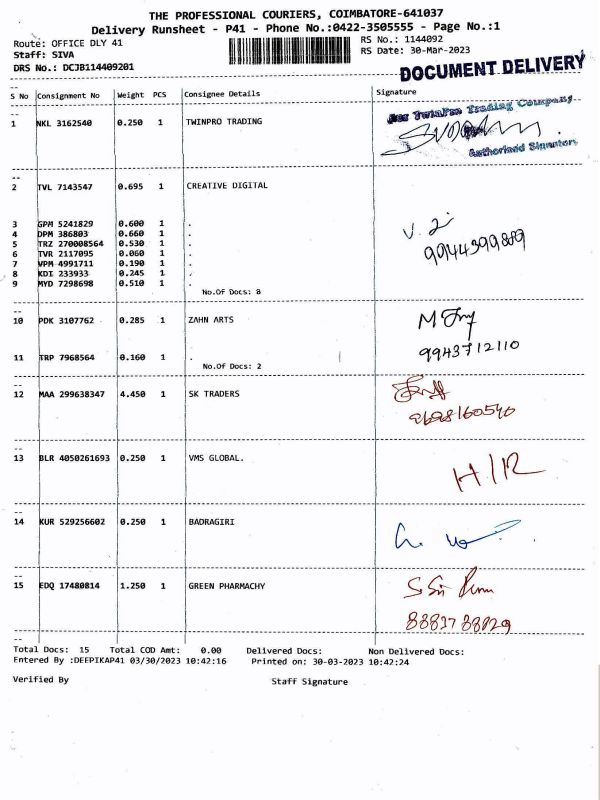 THE PROFESSIONAL COURIERS, COIMBATORE-641037
Delivery Runsheet - P41 - Phone No.:0422-3505555 - Page No.:1
Route: OFFICE DLY 41
RS No.: 1144092
Staff: SIVA
RS Date: 30-Mar-2023
DRS No.: DCJB114409201
DOCUMENT DELIVERY
S No Consignment No Weight PCS Consignee Details Signature
1 NKL 3162540 0.250 1 TWINPRO TRADING
For TwinPro Trading Company
Authorised Signatory
2 TVL 7143547 0.695 1 CREATIVE DIGITAL
3 GPM 5241829 0.600 1 .
4 DPM 386803 0.660 1 .
5 TRZ 270008564 0.530 1 .
6 TVR 2117095 0.060 1 .
7 VPM 4991711 0.190 1 .
8 KDI 233933 0.245 1 .
9 MYD 7298698 0.510 1 .
No.Of Docs: 8
10 PDK 3107762 0.285 1 ZAHN ARTS
9943712110
11 TRP 7968564 0.160 1 .
No.Of Docs: 2
12 MAA 299638347 4.450 1 SK TRADERS
13 BLR 4050261693 0.250 1 VMS GLOBAL.
H/R
14 KUR 529256602 0.250 1 BADRAGIRI
15 EDQ 17480814 1.250 1 GREEN PHARMACHY
Total Docs: 15 Total COD Amt: 0.00 Delivered Docs: Non Delivered Docs:
Entered By :DEEPIKAP41 03/30/2023 10:42:16 Printed on: 30-03-2023 10:42:24
Verified By Staff Signature